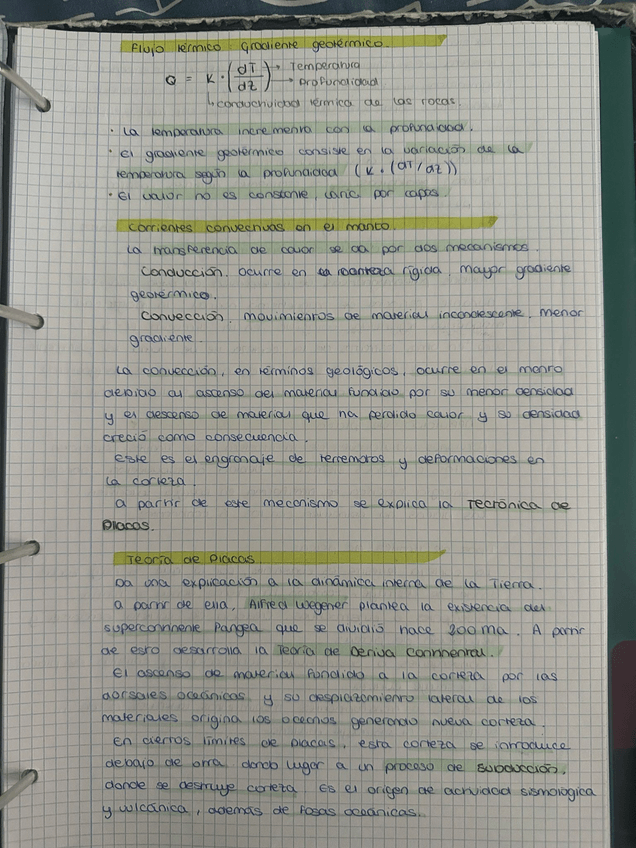 Flujo térmico: Gradiente geotérmico.
Q = K · (dT/dz) → Temperatura
→ profundidad
↳ conductividad térmica de las rocas
· La temperatura incrementa con la profundidad.
· El gradiente geotérmico consiste en la variación de la
temperatura según la profundidad (K · (dT/dz))
· El valor no es constante, varía por capas.
Corrientes convectivas en el manto.
La transferencia de calor se da por dos mecanismos.
Conducción, ocurre en corteza rígida, mayor gradiente
geotérmico.
Convección, movimientos de material incandescente, menor
gradiente.
La convección, en términos geológicos, ocurre en el manto
debido al ascenso del material fundido por su menor densidad
y el descenso de material que ha perdido calor y su densidad
creció como consecuencia.
Este es el engranaje de terremotos y deformaciones en
la corteza.
A partir de este mecanismo se explica la Tectónica de
Placas.
Teoría de Placas
Da una explicación a la dinámica interna de la Tierra.
A partir de ella, Alfred Wegener plantea la existencia del
supercontinente Pangea que se dividió hace 200 ma. A partir
de esto desarrolla la Teoría de Deriva Continental.
El ascenso de material fundido a la corteza por las
dorsales oceánicas y su desplazamiento lateral de los
materiales origina los océanos generando nueva corteza.
En ciertos límites de placas, esta corteza se introduce
debajo de otra dando lugar a un proceso de subducción,
donde se destruye corteza. Es el origen de actividad sismológica
y volcánica, además de fosas oceánicas.